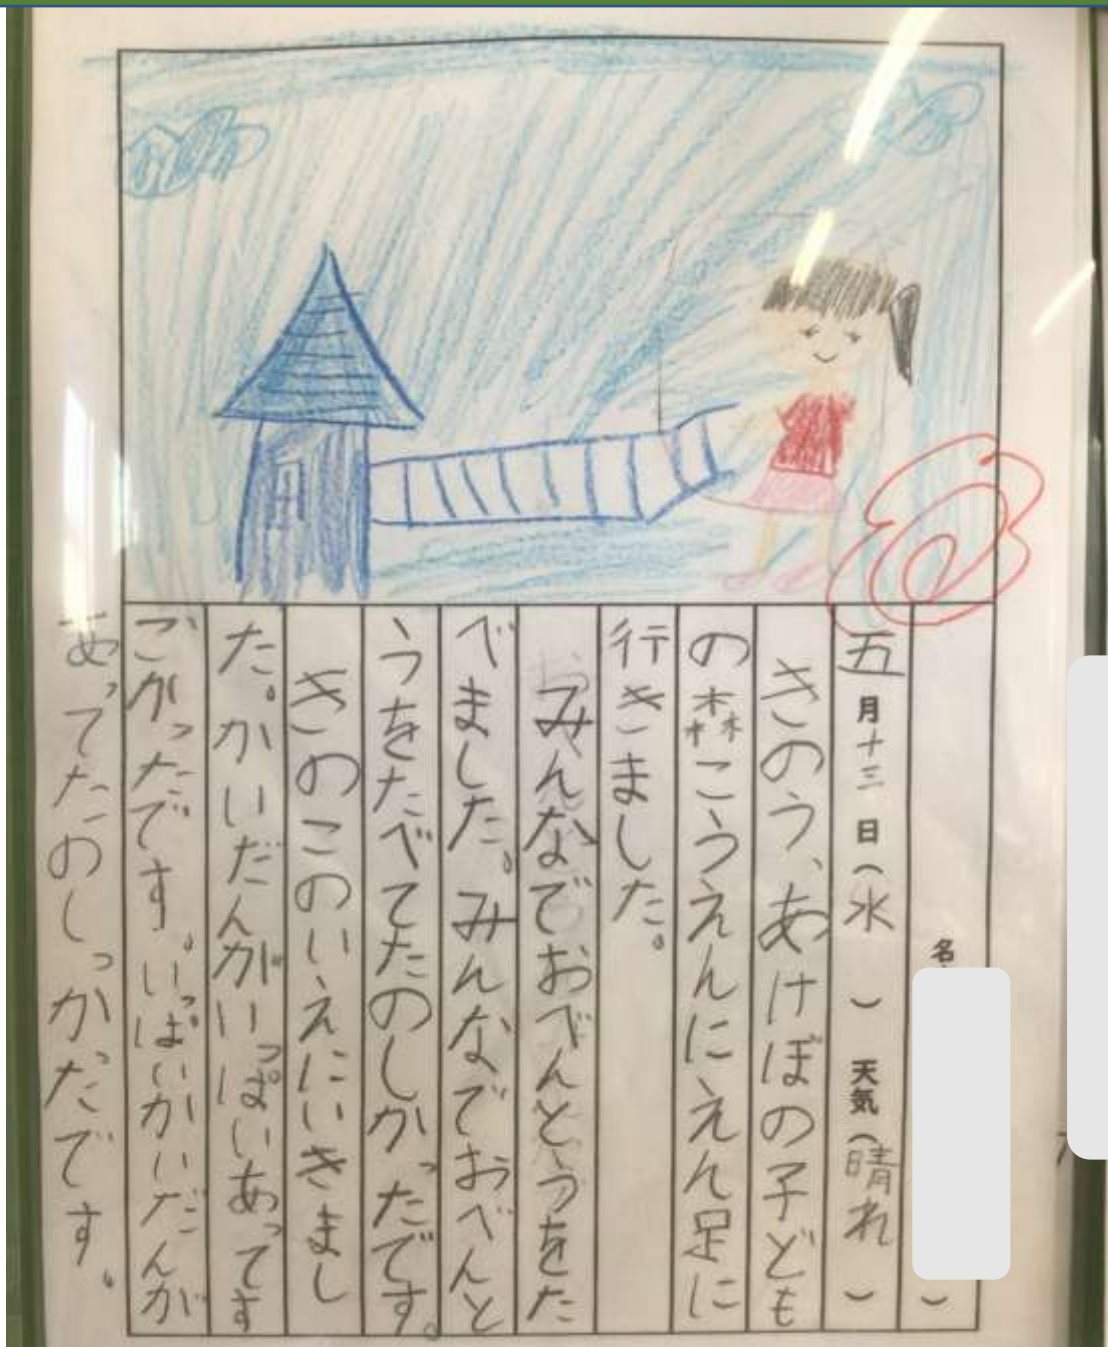 名
五月十三日(水)天気(晴れ)
きのう、あけぼの子ども
の森こうえんにえん足に
行きました。
みんなでおべんとうをた
べました。みんなでおべんと
うをたべてたのしかったです。
きのこのいえにいきまし
た。かいだんがいっぱいあってす
ごかったです。いっぱいかいだんが
あってたのしっかたです。